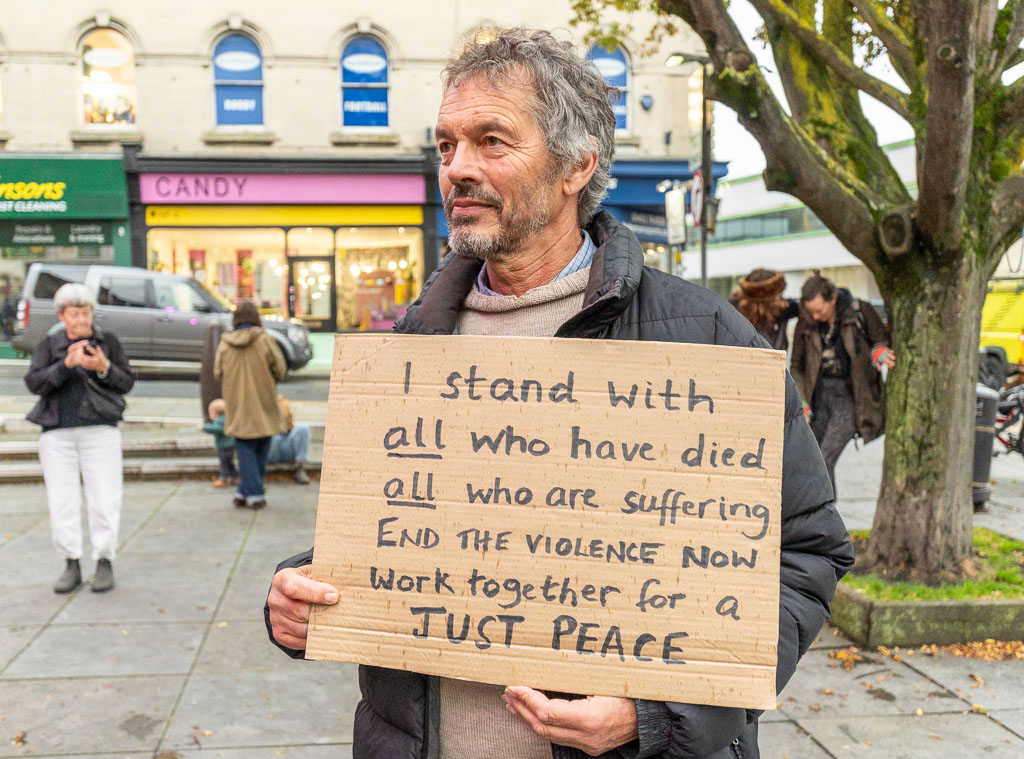 RUGBY
FOOTBALL
CANDY
I stand with
all who have died
all who are suffering
END THE VIOLENCE NOW
Work together for a
JUST PEACE